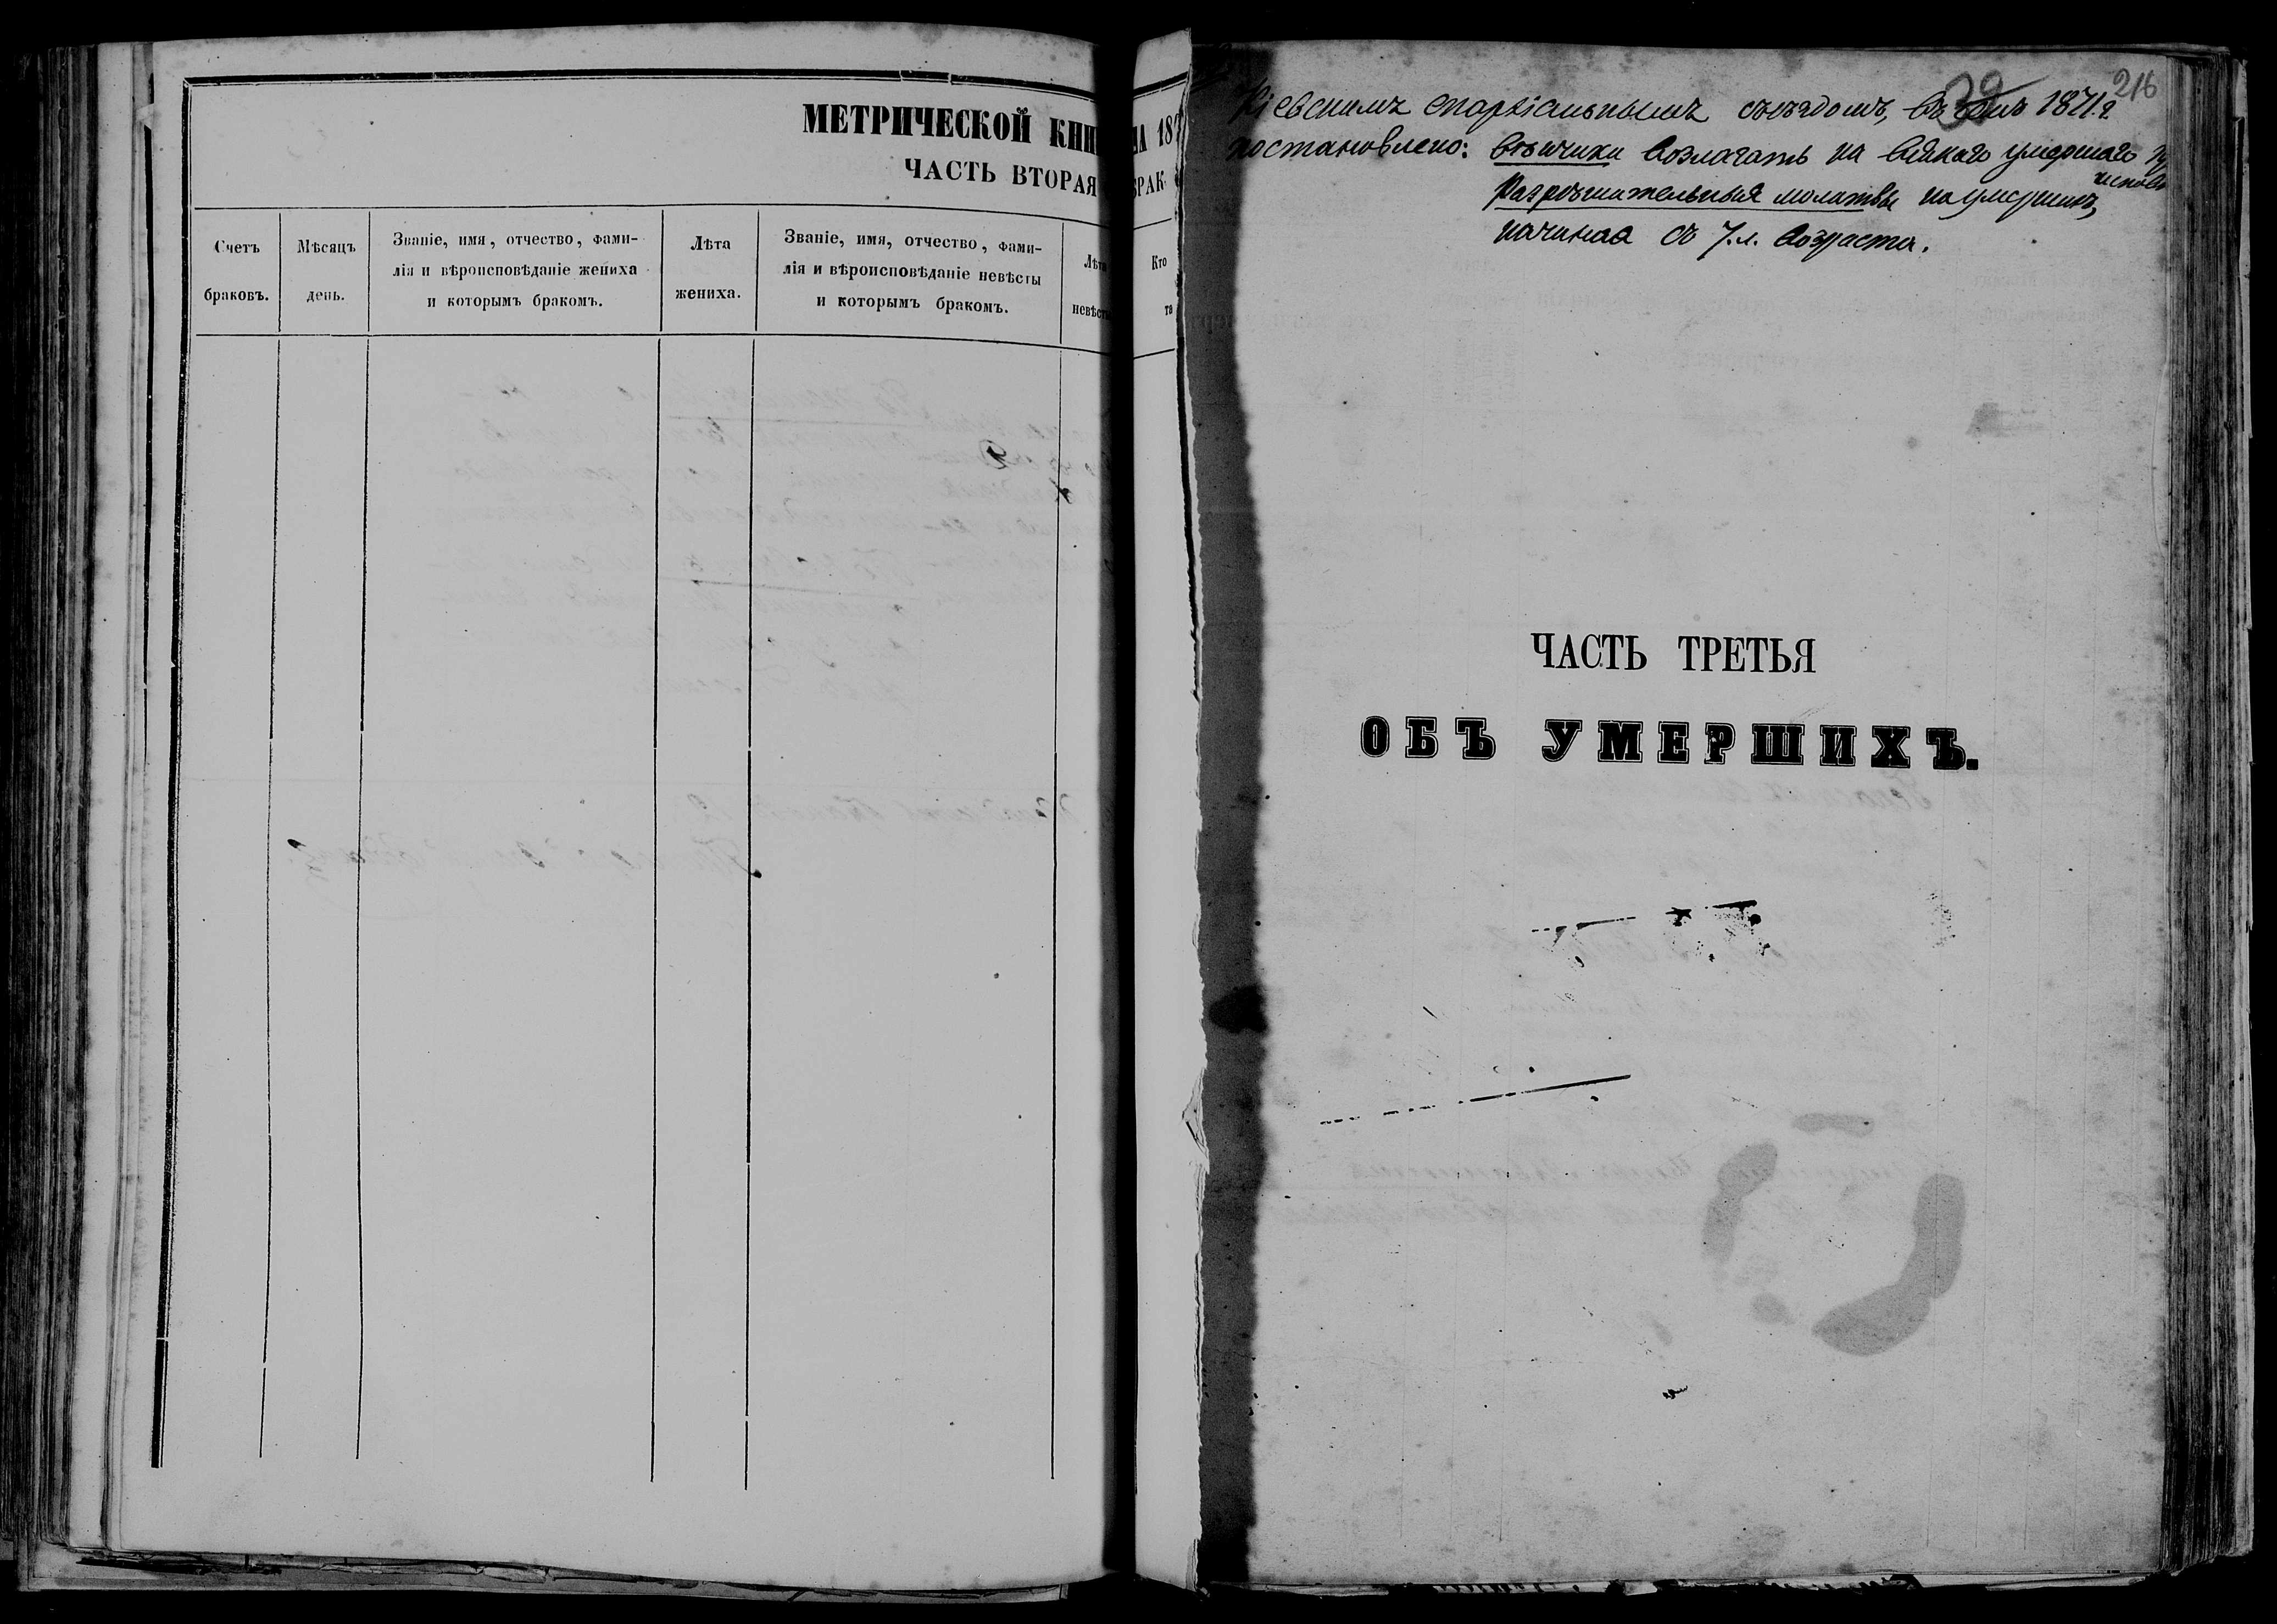 МЕТРИЧЕСКОЙ КНИ
ЧАСТЬ ВТОРАЯ
Счетъ
браковъ.
Мѣсяцъ
день.
Званіе, имя, отчество, фами-
лія и вѣроисповѣданіе жениха
и которымъ бракомъ.
Лѣта
жениха.
Званіе, имя, отчество, фами-
лія и вѣроисповѣданіе невѣсты
и которымъ бракомъ.
Лѣта
невѣст
НА 187
БРАК
Кто
та
216
39
Кіевскимъ епархіальнымъ съѣздомъ, въ 1871 г.
постановлено: вѣнчики возлагать на всякаго умершаго
Разрѣшительныя молитвы на умершихъ,
начиная съ 7 л. возраста.
ЧАСТЬ ТРЕТЬЯ
ОБЪ УМЕРШИХЪ.